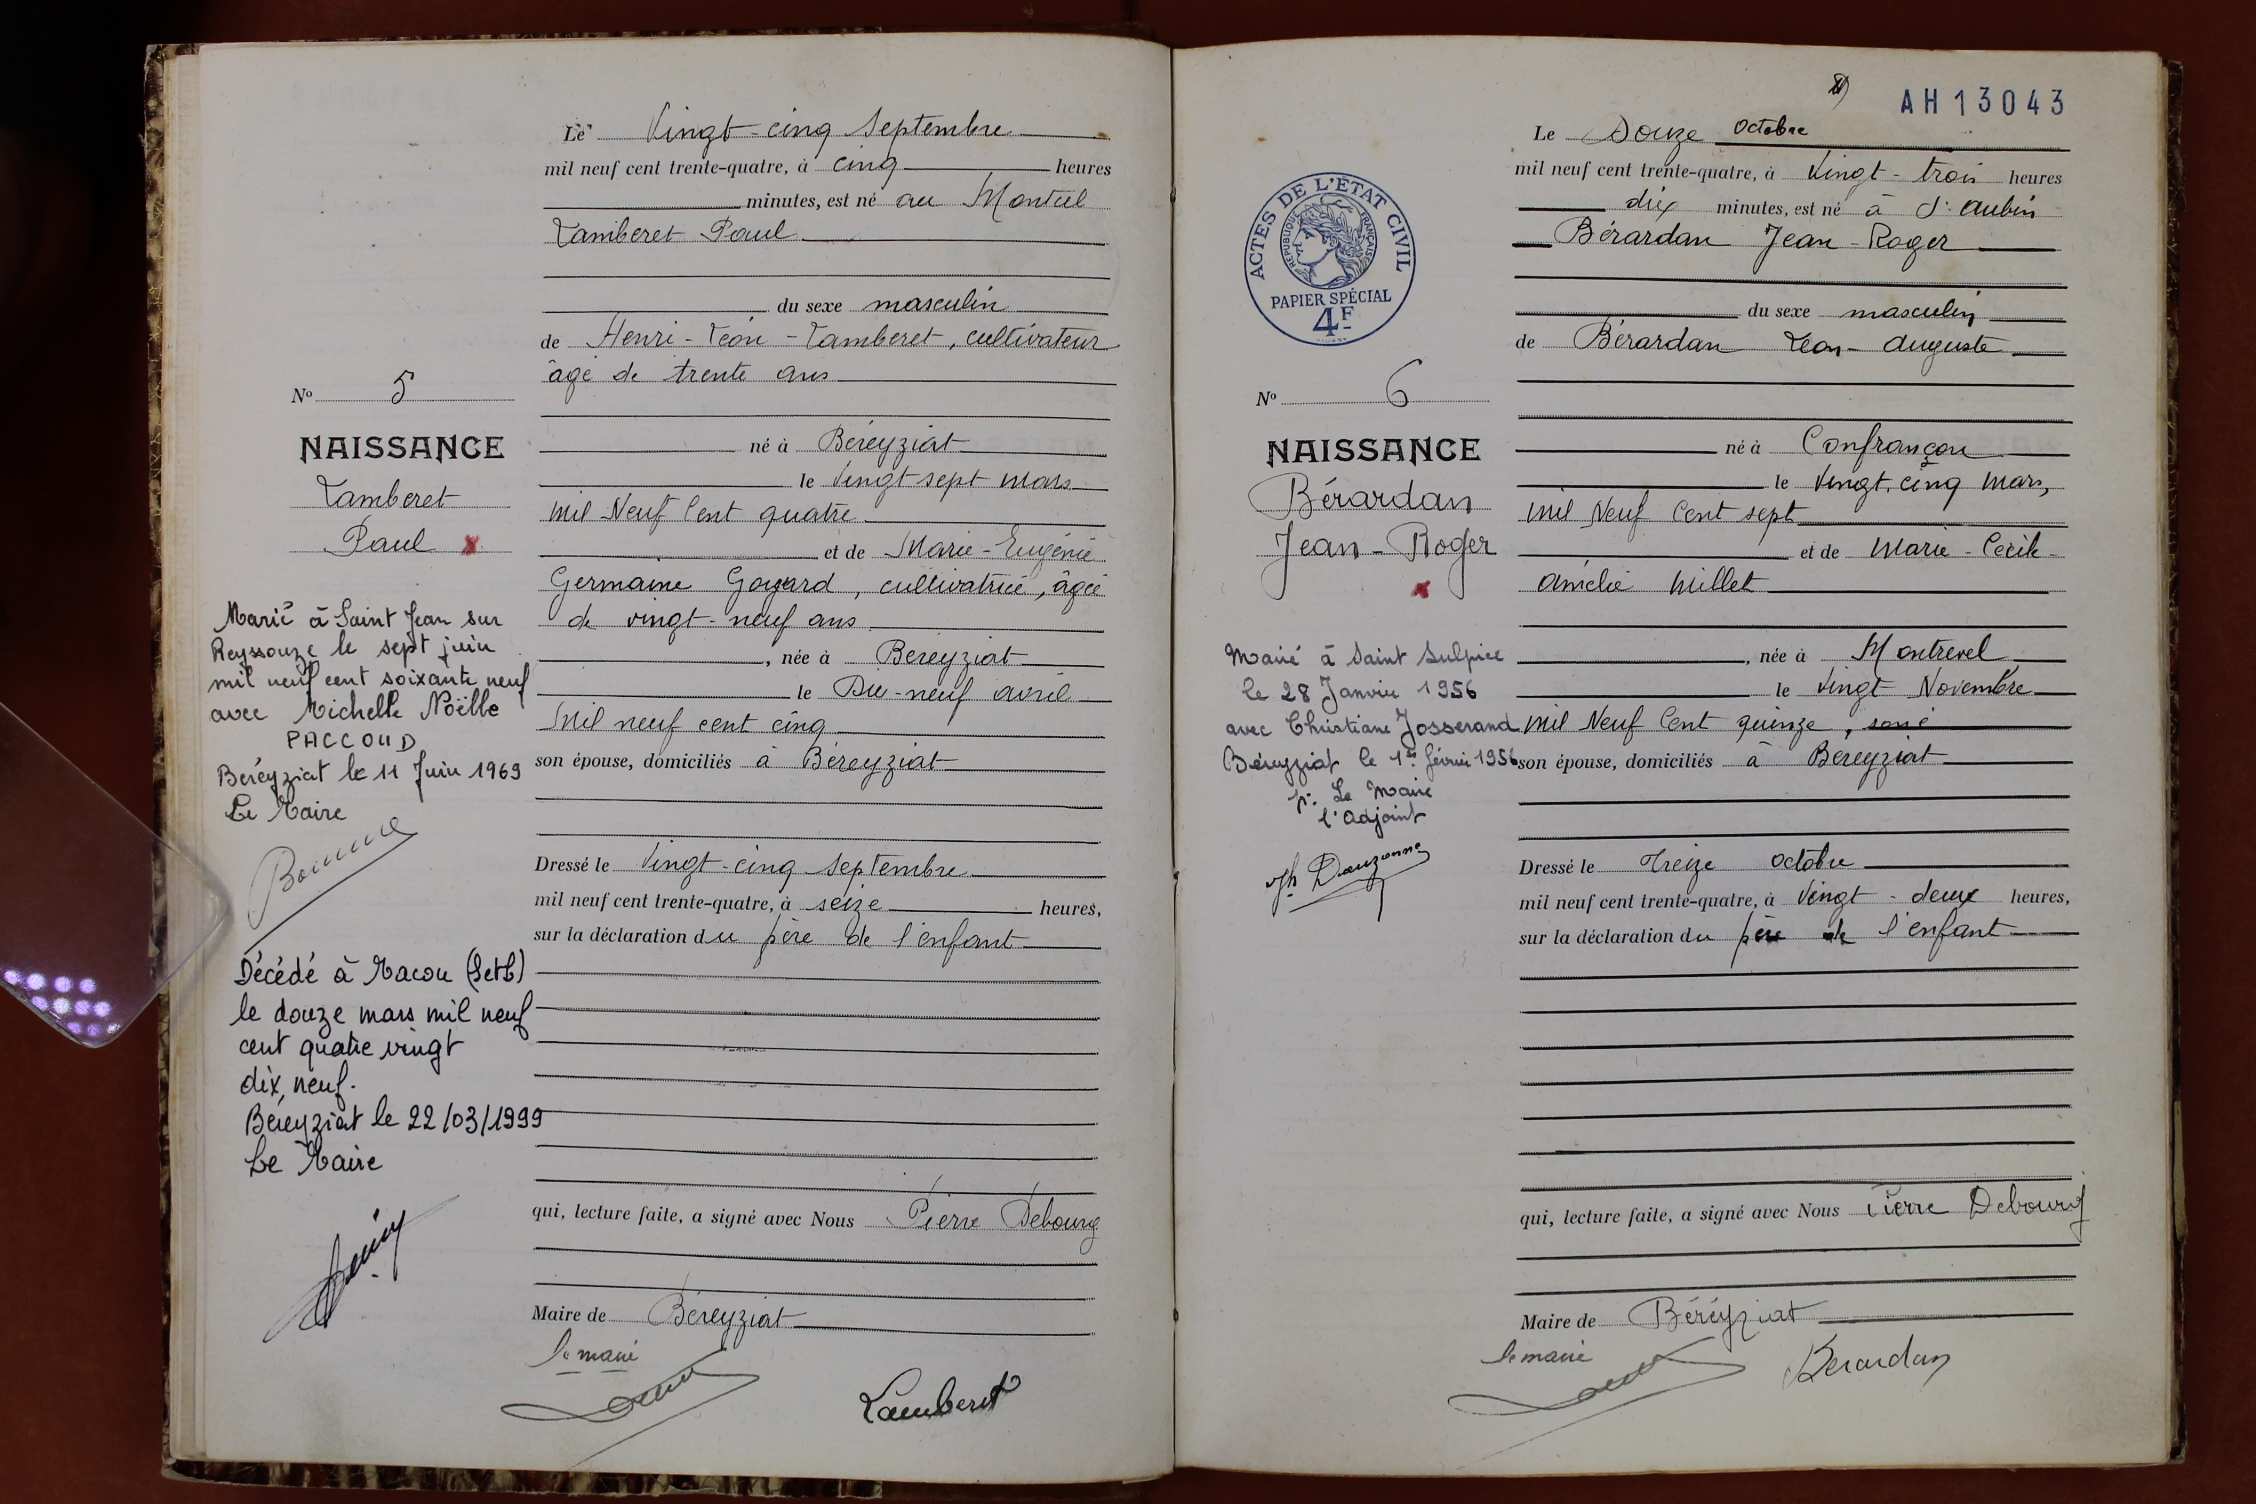 Le Vingt-cinq Septembre
mil neuf cent trente-quatre, à cinq heures
minutes, est né au Monteil
Lamberet Paul
du sexe masculin
de Henri-Léon-Lamberet, cultivateur
âgé de trente ans
né à Béréyziat
le Vingt sept mars
mil Neuf Cent quatre
et de Marie-Eugénie
Germaine Goyard, cultivatrice, âgée
de vingt-neuf ans
, née à Béréyziat
le Dix-neuf avril
Mil neuf cent cinq
son épouse, domiciliés à Béreyziat
Dressé le Vingt-cinq Septembre
mil neuf cent trente-quatre, à seize heures,
sur la déclaration du père de l'enfant
qui, lecture faite, a signé avec Nous Pierre Debourg
Maire de Béreyziat
le maire
Lamberet
No 5
NAISSANCE
Lamberet
Paul
Marié à Saint Jean sur
Reyssouze le sept juin
mil neuf cent soixante neuf
avec Michelle Noëlle
PACCOUD
Beréyziat le 11 Juin 1969
Le Maire
Décédé à Macon (SetL)
le douze mars mil neuf
cent quatre vingt
dix neuf.
Béreyziat le 22/03/1999
Le Maire
AH13043
Le Douze Octobre
mil neuf cent trente-quatre, à Vingt-trois heures
dix minutes, est né à St aubin
Bérardan Jean-Roger
du sexe masculin
de Bérardan Léon-Auguste
né à Confrançon
le Vingt-cinq Mars,
mil Neuf Cent sept
et de Marie-Cécile-
Amélie Millet
, née à Montrevel
le Vingt Novembre
Mil Neuf Cent quinze,
son épouse, domiciliés à Béreyziat
Dressé le Treize octobre
mil neuf cent trente-quatre, à Vingt-deux heures,
sur la déclaration du père de l'enfant
qui, lecture faite, a signé avec Nous Pierre Debourg
Maire de Béréyziat
le maire
Berardan
ACTES DE L'ETAT CIVIL
REPUBLIQUE FRANÇAISE
PAPIER SPÉCIAL
4F
No 6
NAISSANCE
Bérardan
Jean-Roger
Marié à Saint Sulpice
le 28 Janvier 1956
avec Christiane Josserand
Béreyziat le 1er février 1956
p. Le Maire
l'Adjoint